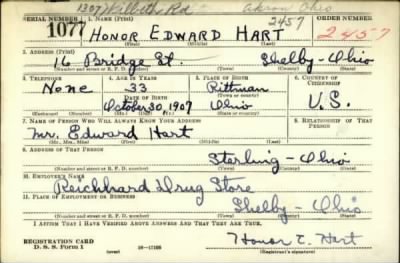 1207 Wilbeth Rd Akron Ohio
SERIAL NUMBER 1. NAME (Print) 2457 ORDER NUMBER (Print)
1077 HONOR EDWARD HART 2457
(First) (Middle) (Last)
2. ADDRESS (Print)
16 Bridge St. Shelby - Ohio
(Number and street or R. F. D. number) (Town) (County) (State)
3. TELEPHONE 4. AGE IN YEARS 5. PLACE OF BIRTH 6. COUNTRY OF CITIZENSHIP
None 33 Rittman
DATE OF BIRTH (Town or county)
October 30, 1907 Ohio U.S.
(Exchange) (Number) (Mo.) (Day) (Yr.) (State or country)
7. NAME OF PERSON WHO WILL ALWAYS KNOW YOUR ADDRESS 8. RELATIONSHIP OF THAT PERSON
Mr. Edward Hart
(Mr., Mrs., Miss) (First) (Middle) (Last)
9. ADDRESS OF THAT PERSON
Sterling - Ohio
(Number and street or R. F. D. number) (Town) (County) (State)
10. EMPLOYER'S NAME
Reichhard Drug Store
11. PLACE OF EMPLOYMENT OR BUSINESS
Shelby - Ohio
(Number and street or R. F. D. number) (Town) (County) (State)
I AFFIRM THAT I HAVE VERIFIED ABOVE ANSWERS AND THAT THEY ARE TRUE.
REGISTRATION CARD
D. S. S. Form 1 (over) Honor E. Hart
(Registrant's signature)